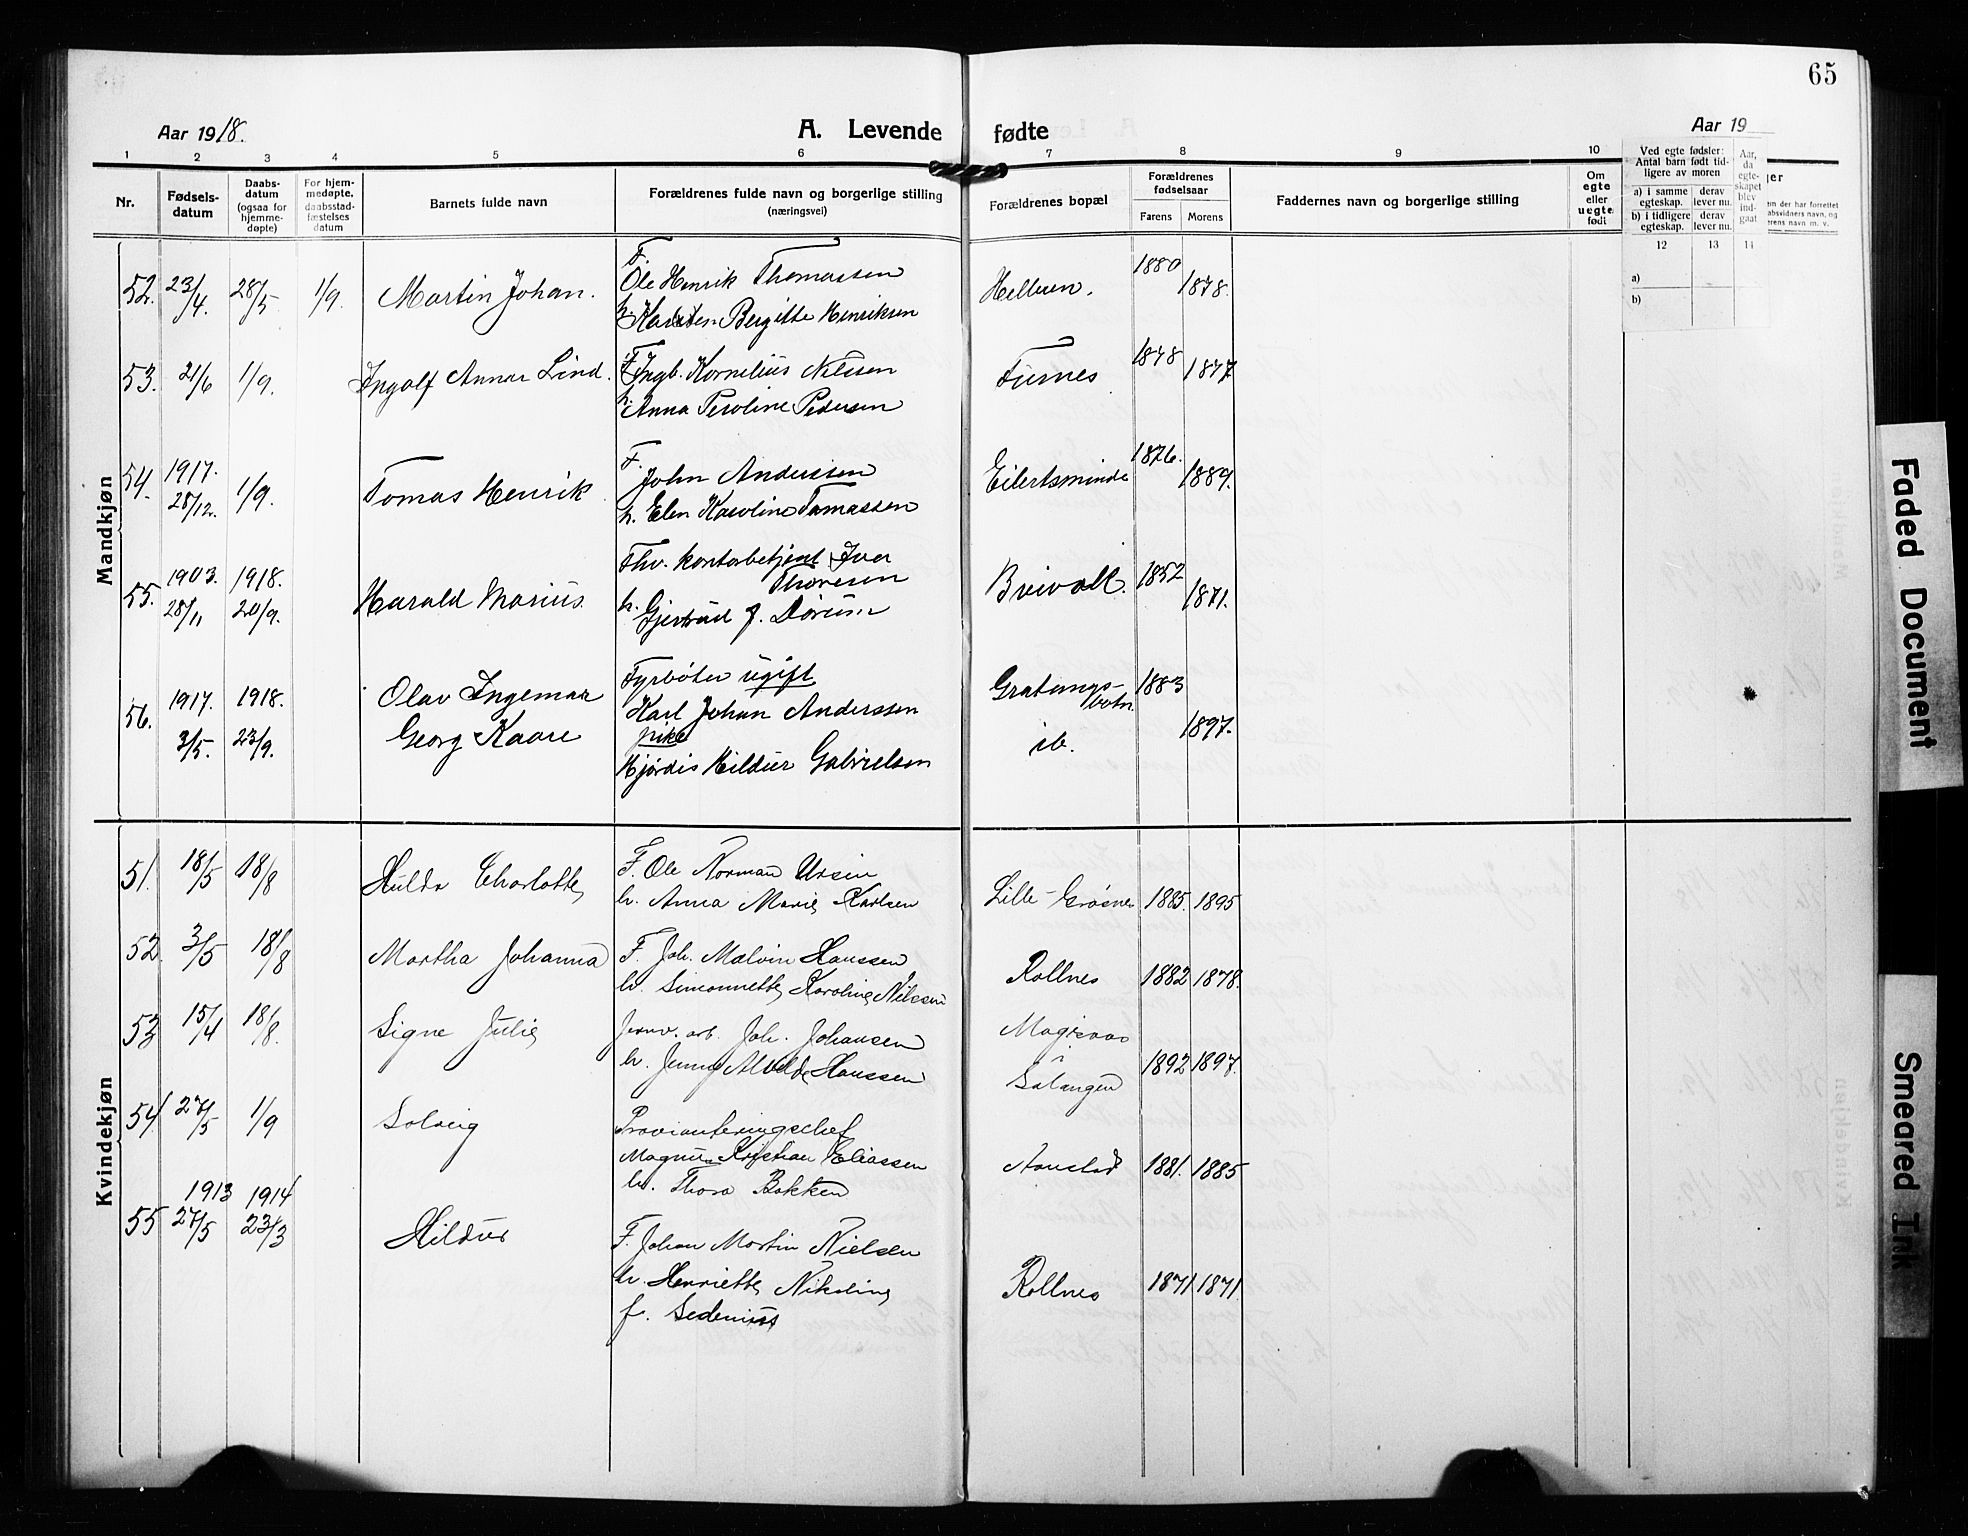 65
Aar 1918.
A. Levende fødte
Aar 19
1 2 3 4 5 6 7 8 9 10
Nr.
Fødsels-
datum
Daabs-
datum
(ogsaa for
hjemme-
døpte)
For hjem-
medøpte,
daabsstad-
fæstelses
datum
Barnets fulde navn
Forældrenes fulde navn og borgerlige stilling
(næringsvei)
Forældrenes bopæl
Forældrenes
fødselsaar
Farens Morens
Faddernes navn og borgerlige stilling
Om
egte
eller
uegte
født
Ved egte fødsler:
Antal barn født tid-
ligere av moren
a) i samme
egteskap.
derav
lever nu.
b) i tidligere
egteskap.
derav
lever nu.
Aar,
da
egte-
skapet
blev
ind-
gaat
12 13 14
a)
b)
Mandkjøn
52. 23/4. 28/5 1/9. Martin Johan.
F.
Ole Henrik Thomassen
h. Karsten Bergitte Henriksen
Helleren. 1880 1878.
53. 21/6 1/9. Ingolf Annar Lind.
F. Ingb. Kornelius Nilssen
h. Anna Peroline Pedersen
Fusnes 1878 1877
54. 1917. 28/12. 1/9. Tomas Henrik
F.
John Anderssen
h. Elen Karoline Tomassen
Eilertsminde 1876. 1889.
55. 1903. 28/11 1918. 20/9. Harald Marius.
Fhv. kontorbetjent Iver
Thoresen
h. Gjertrud f. Dørum
Breivoll. 1852 1871.
56. 1917. 3/5. 1918. 23/9. Olav Ingemar
Georg Kaare
Fyrbøter ugift
Karl Johan Anderssen
pike
Hjørdis Hildur Gabrielsen
Gratangs-
botn. 1883
ib. 1897.
Kvindekjøn
51. 18/5 18/8 Hulda Charlotte
F. Ole Norman Ursin
h. Anna Marie Karlsen
Lille-Grøsnes 1885. 1895
52. 3/5 18/8 Martha Johanna
F. Joh. Malvin Hanssen
h. Simonnette Karoline Nilssen
Rollnes 1882 1878.
53 15/4 18/8. Signe Julie
Jernv. arb. Joh. Johansen
h. Jenny Alvilde Hanssen
Salangen 1892 1897.
54 27/5 1/9 Solveig
Provianteringschef
Magnus Kristian Eliassen
h. Thora Bakken
Aanstad 1881. 1885
55 1913 27/5 1914 23/3 Hildur
F. Johan Martin Nielsen
h. Henriette Nikoline
f. Sedenius
Rollnes 1871 1871.
Faded Document
Smeared Ink